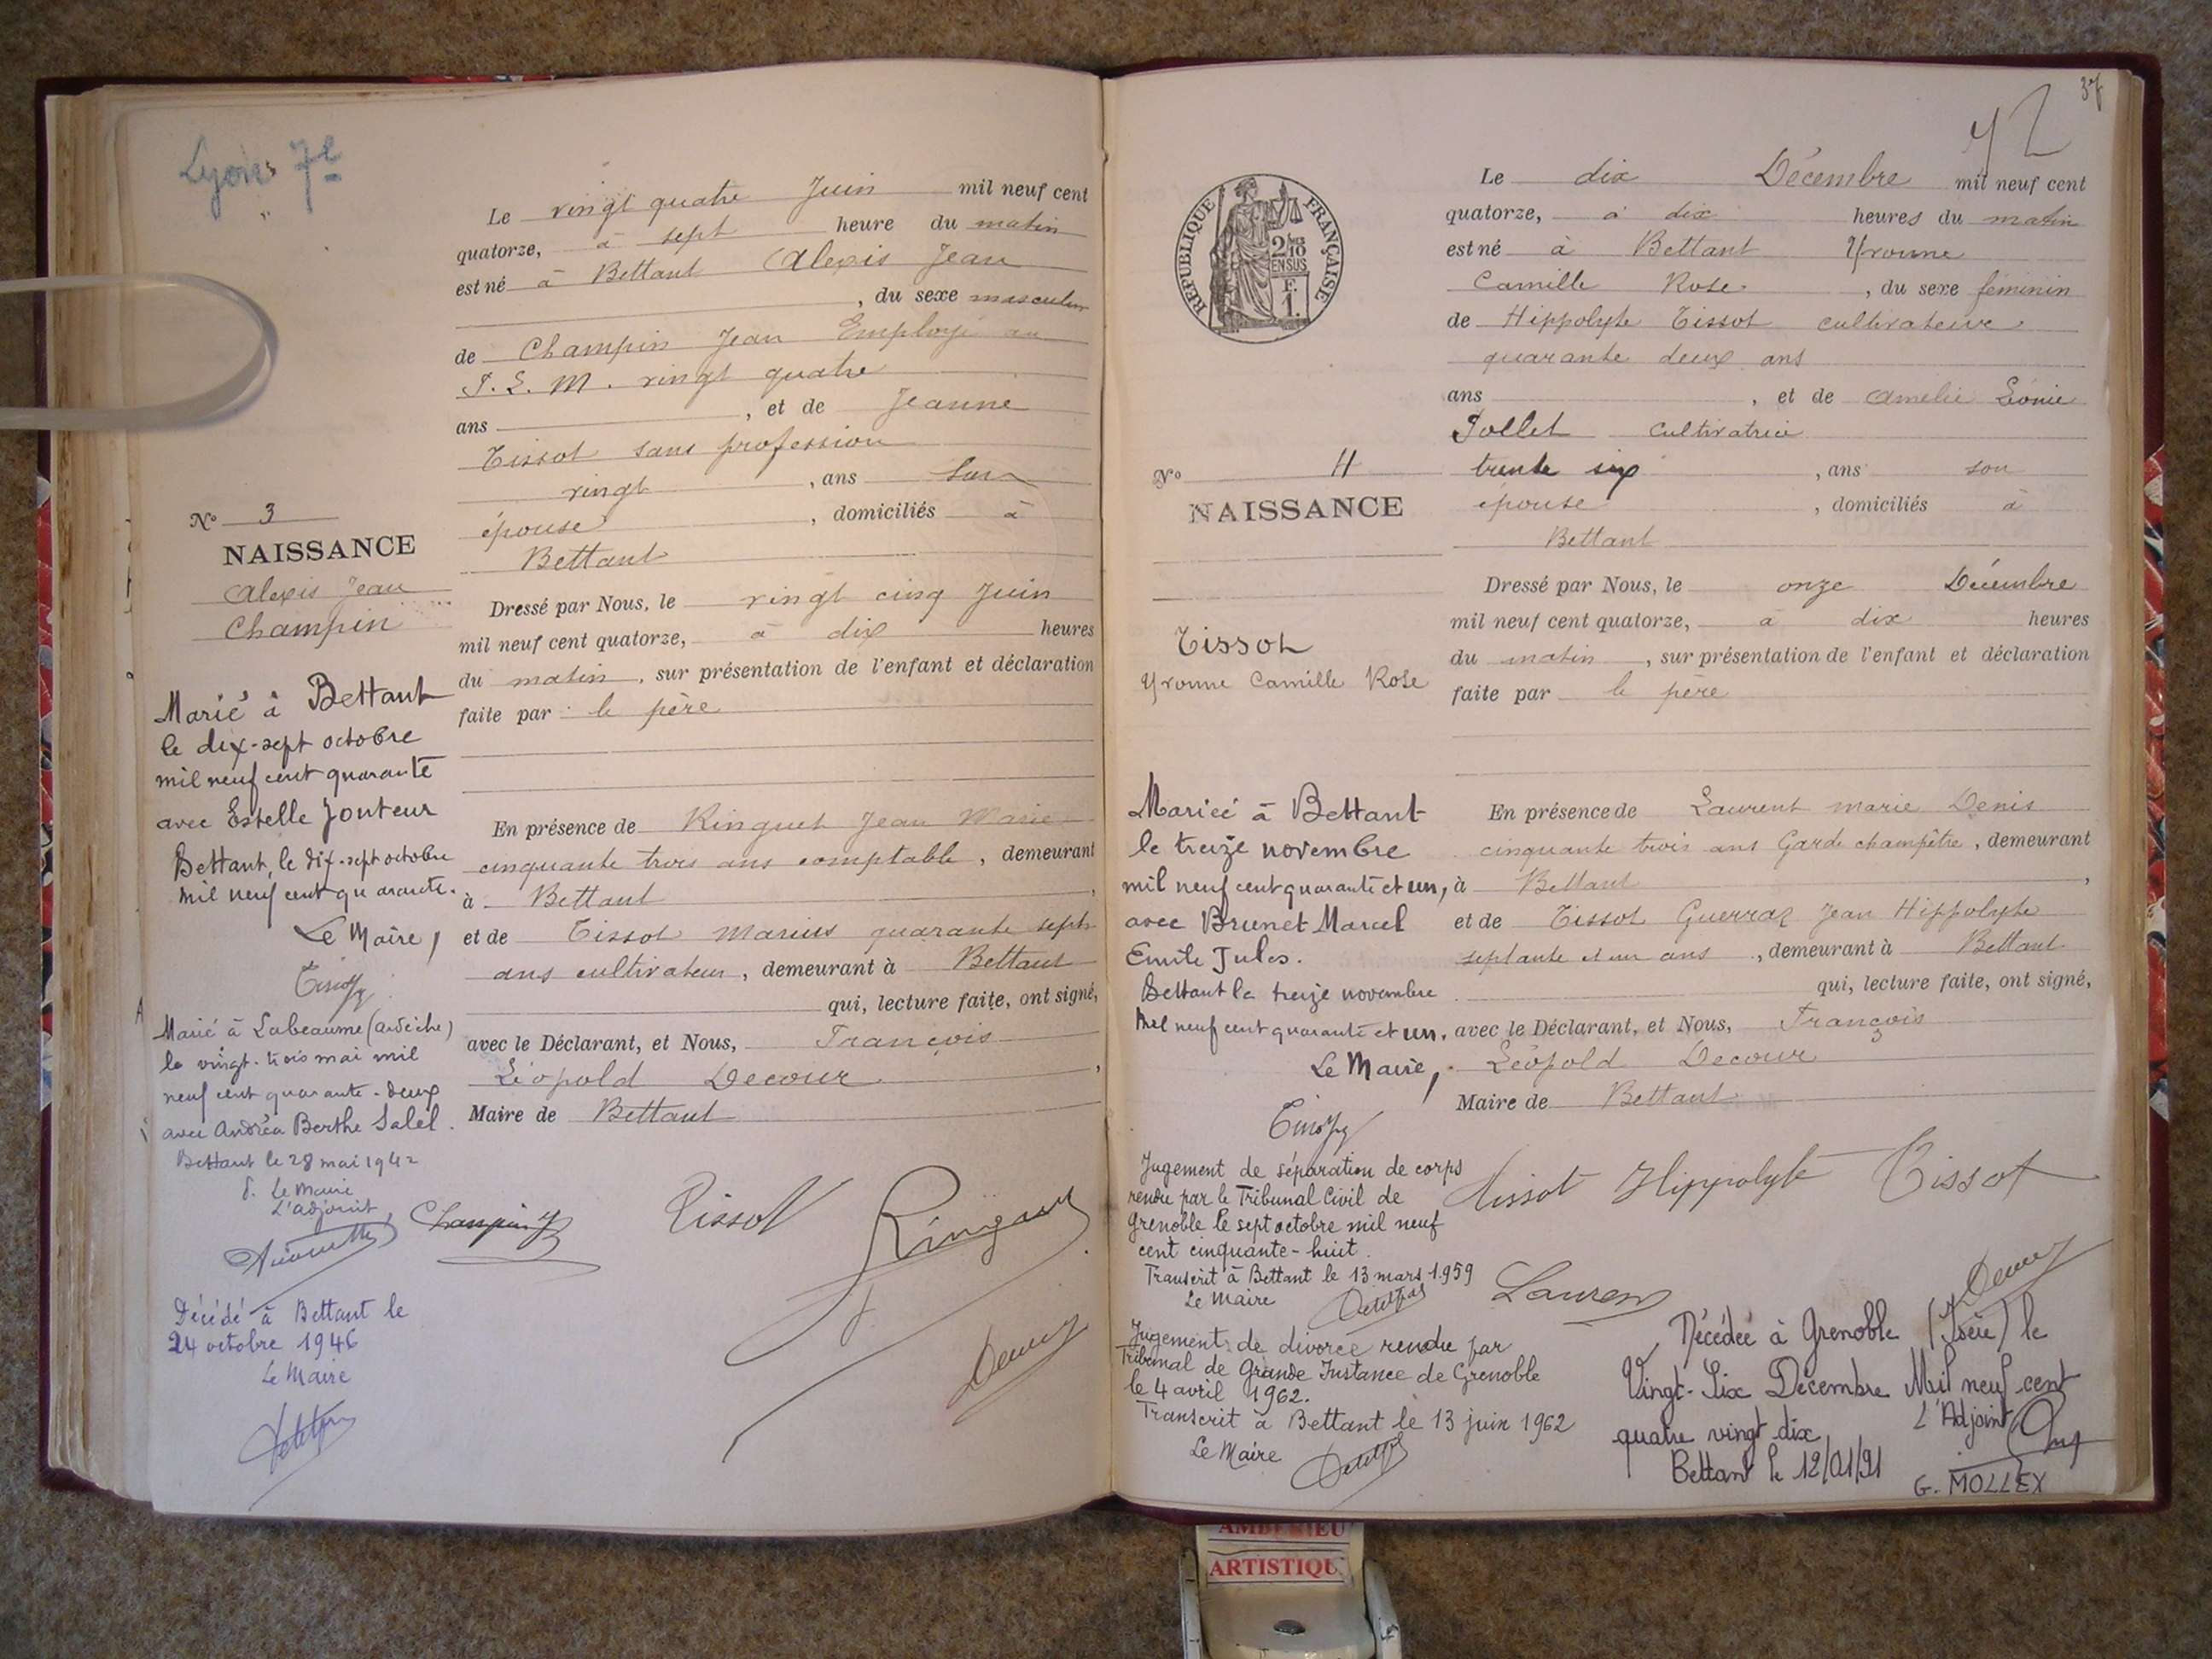 Lyon 7e
Le vingt quatre Juin mil neuf cent
quatorze, à sept heure du matin
est né à Bettant Alexis Jean
, du sexe masculin
de Champin Jean Employé au
P. L. M. vingt quatre
ans , et de Jeanne
Tissot sans profession
vingt , ans son
épouse , domiciliés à
Bettant
N° 3
NAISSANCE
Alexis Jean
Champin
Dressé par Nous, le vingt cinq Juin
mil neuf cent quatorze, à dix heures
du matin, sur présentation de l'enfant et déclaration
faite par le père
En présence de Ringuet Jean Marie
cinquante trois ans comptable, demeurant
à Bettant,
et de Tissot Marius quarante sept
ans cultivateur, demeurant à Bettant
qui, lecture faite, ont signé,
avec le Déclarant, et Nous, François
Léopold Decour,
Maire de Bettant
Marié à Bettant
le dix-sept octobre
mil neuf cent quarante
avec Estelle Jonteur
Bettant, le dix-sept octobre
mil neuf cent quarante.
Le Maire,
Marié à Labeaume (Ardèche)
le vingt-trois mai mil
neuf cent quarante-deux
avec Andréa Berthe Salel.
Bettant le 28 mai 1942
P. Le Maire
L'adjoint,
Champin J
Tissot
Décédé à Bettant le
24 octobre 1946
Le Maire
37
42
RÉPUBLIQUE FRANÇAISE
2/10
EN SUS
F.
1.
Le dix Décembre mil neuf cent
quatorze, à dix heures du matin
est né à Bettant Yvonne
Camille Rose , du sexe féminin
de Hippolyte Tissot cultivateur
quarante deux ans
ans , et de Amélie Léonie
Pollet cultivatrice
trente six , ans son
épouse , domiciliés à
Bettant
N° 4
NAISSANCE
Tissot
Yvonne Camille Rose
Dressé par Nous, le onze Décembre
mil neuf cent quatorze, à dix heures
du matin, sur présentation de l'enfant et déclaration
faite par le père
En présence de Laurent Marie Denis
cinquante trois ans Garde champêtre, demeurant
à Bettant,
et de Tissot Guerraz Jean Hippolyte
septante et un ans, demeurant à Bettant
qui, lecture faite, ont signé,
avec le Déclarant, et Nous, François
Léopold Decour
Maire de Bettant
Mariée à Bettant
le treize novembre
mil neuf cent quarante et un,
avec Brunet Marcel
Emile Jules.
Bettant le treize novembre
Mil neuf cent quarante et un.
Le Maire,
Tissot Hippolyte Tissot
Jugement de séparation de corps
rendu par le Tribunal Civil de
Grenoble le sept octobre mil neuf
cent cinquante-huit.
Transcrit à Bettant le 13 mars 1959
Le Maire
Laurent
Jugement de divorce rendu par
Tribunal de Grande Instance de Grenoble
le 4 avril 1962.
Transcrit à Bettant le 13 juin 1962
Le Maire
Décédée à Grenoble (Isère) le
Vingt-Six Décembre Mil neuf cent
quatre vingt dix
L'Adjoint
Bettant le 12/01/91
G. MOLLEX
AMBERIEU
ARTISTIQU